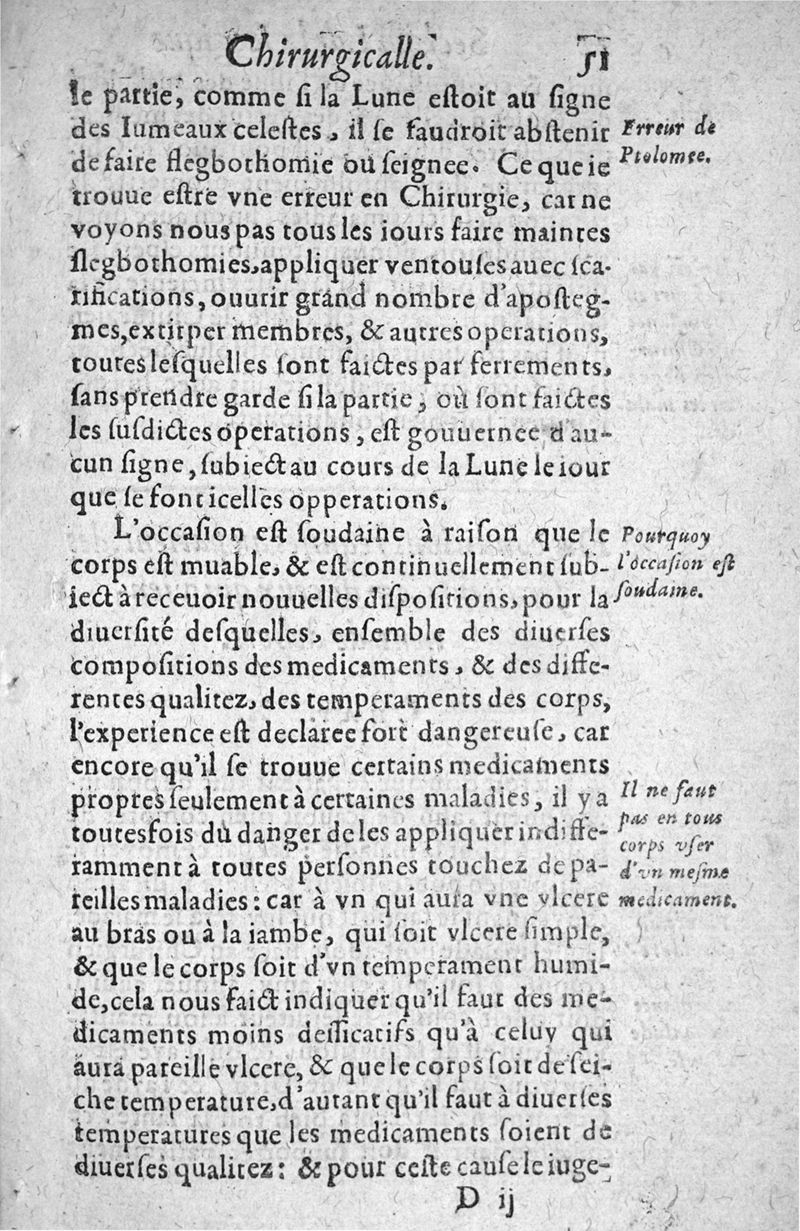 Chirurgicalle. 51
le partie, comme ſi la Lune eſtoit au ſigne
des Iumeaux celeſtes, il ſe faudroit abſtenir
de faire flegbothomie ou ſeignee. Ce que ie
trouue eſtre vne erreur en Chirurgie, car ne
voyons nous pas tous les iours faire maintes
flegbothomies, appliquer ventouſes auec ſca-
rifications, ouurir grand nombre d'apoſteg-
mes, extirper membres, & autres operations,
toutes leſquelles ſont faictes par ferrements,
ſans prendre garde ſi la partie, où ſont faictes
les ſuſdictes operations, eſt gouuernee d'au-
cun ſigne, ſubiect au cours de la Lune le iour
que ſe font icelles opperations.
Erreur de
Ptolomee.
L'occaſion eſt ſoudaine à raiſon que le
corps eſt muable, & eſt continuellement ſub-
iect à receuoir nouuelles diſpoſitions, pour la
diuerſité deſquelles, enſemble des diuerſes
compoſitions des medicaments, & des diffe-
rentes qualitez, des temperaments des corps,
l'experience eſt declaree fort dangereuſe, car
encore qu'il ſe trouue certains medicaments
propres ſeulement à certaines maladies, il y a
toutesfois du danger de les appliquer indiffe-
ramment à toutes perſonnes touchez de pa-
reilles maladies: car à vn qui aura vne vlcere
au bras ou à la iambe, qui ſoit vlcere ſimple,
& que le corps ſoit d'vn temperament humi-
de, cela nous faict indiquer qu'il faut des me-
dicaments moins deſſicatifs qu'à celuy qui
aura pareille vlcere, & que le corps ſoit de ſei-
che temperature, d'autant qu'il faut à diuerſes
temperatures que les medicaments ſoient de
diuerſes qualitez: & pour ceſte cauſe le iuge-
Pourquoy
l'occaſion eſt
ſoudaine.
Il ne faut
pas en tous
corps vſer
d'vn meſme
medicament.
D ij